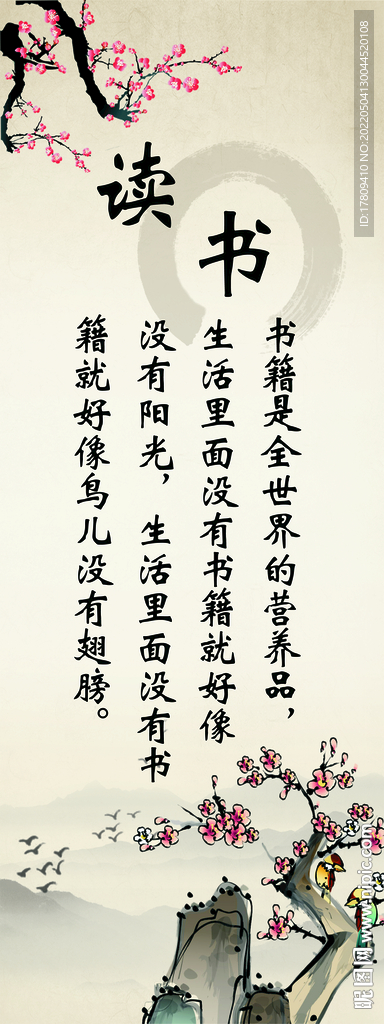 读书
书籍是全世界的营养品，
生活里面没有书籍就好像
没有阳光，生活里面没有书
籍就好像鸟儿没有翅膀。
ID:17809410 NO:20220504130044520108
昵图网 www.nipic.com